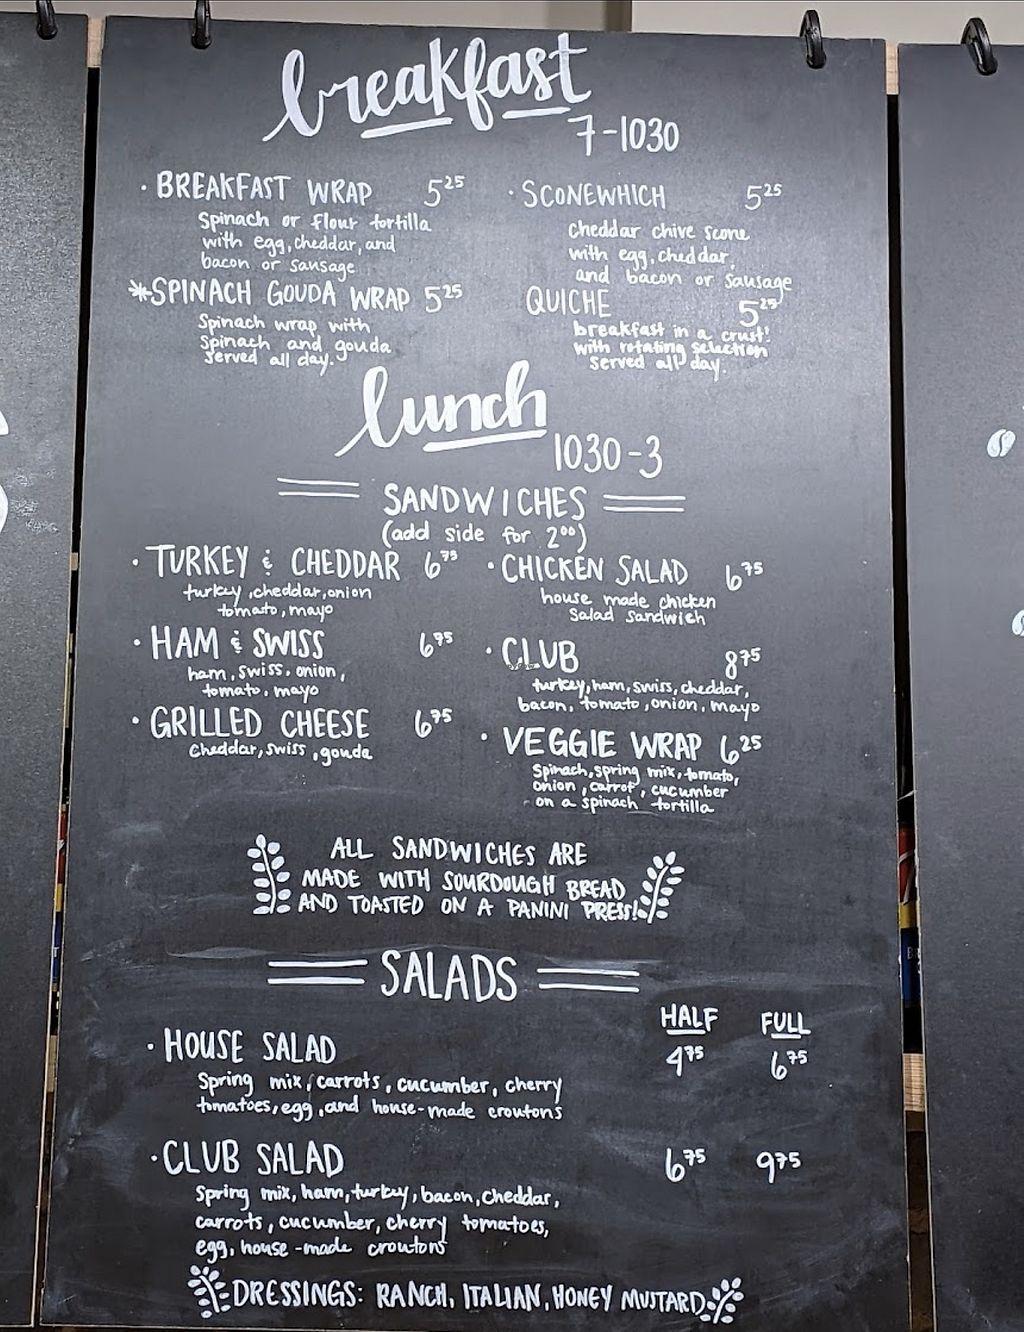 breakfast
7-1030
· BREAKFAST WRAP 5²⁵
Spinach or flour tortilla
with egg, cheddar, and
bacon or sausage
*SPINACH GOUDA WRAP 5²⁵
Spinach wrap with
Spinach and gouda
served all day.
· SCONEWHICH 5²⁵
cheddar chive scone
with egg, cheddar,
and bacon or sausage
QUICHE 5²⁵
breakfast in a crust!
with rotating selection
served all day.
lunch
1030-3
SANDWICHES
(add side for 2⁰⁰)
· TURKEY & CHEDDAR 6⁷⁵
turkey, cheddar, onion
tomato, mayo
· HAM & SWISS 6⁷⁵
ham, swiss, onion,
tomato, mayo
· GRILLED CHEESE 6⁷⁵
cheddar, swiss, gouda
· CHICKEN SALAD 6⁷⁵
house made chicken
salad sandwich
· CLUB 8⁷⁵
turkey, ham, swiss, cheddar,
bacon, tomato, onion, mayo
· VEGGIE WRAP 6²⁵
Spinach, spring mix, tomato,
onion, carrot, cucumber
on a spinach tortilla
ALL SANDWICHES ARE
MADE WITH SOURDOUGH BREAD
AND TOASTED ON A PANINI PRESS!
SALADS
HALF FULL
· HOUSE SALAD 4⁷⁵ 6⁷⁵
Spring mix, carrots, cucumber, cherry
tomatoes, egg, and house-made croutons
· CLUB SALAD 6⁷⁵ 9⁷⁵
Spring mix, ham, turkey, bacon, cheddar,
carrots, cucumber, cherry tomatoes,
egg, house-made croutons
DRESSINGS: RANCH, ITALIAN, HONEY MUSTARD